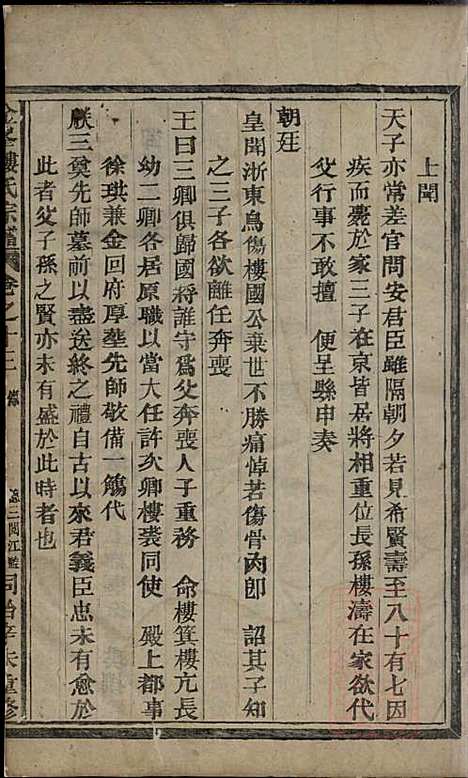 上聞
天子亦常差官問安君臣雖隔朝夕若見希賢壽至八十有七因
疾而薨於家三子在京皆居將相重位長孫樓濤在家欲代
父行事不敢擅　便呈縣申奏
朝廷
皇聞浙東烏傷樓國公棄世不勝痛悼若傷骨肉卽　詔其子知
之三子各欲離任奔喪
王曰三卿俱歸國將誰守爲父奔喪人子重務　命樓箕樓亢長
幼二卿各居原職以當大任許次卿樓裘同使　殿上都事
徐珙兼金回府厚葬先師敬備一觴代
朕三奠先師墓前以盡送終之禮自古以來君義臣忠未有愈於
此者父子孫之賢亦未有盛於此時者也
樓氏宗譜　卷之十三
同治辛未重修